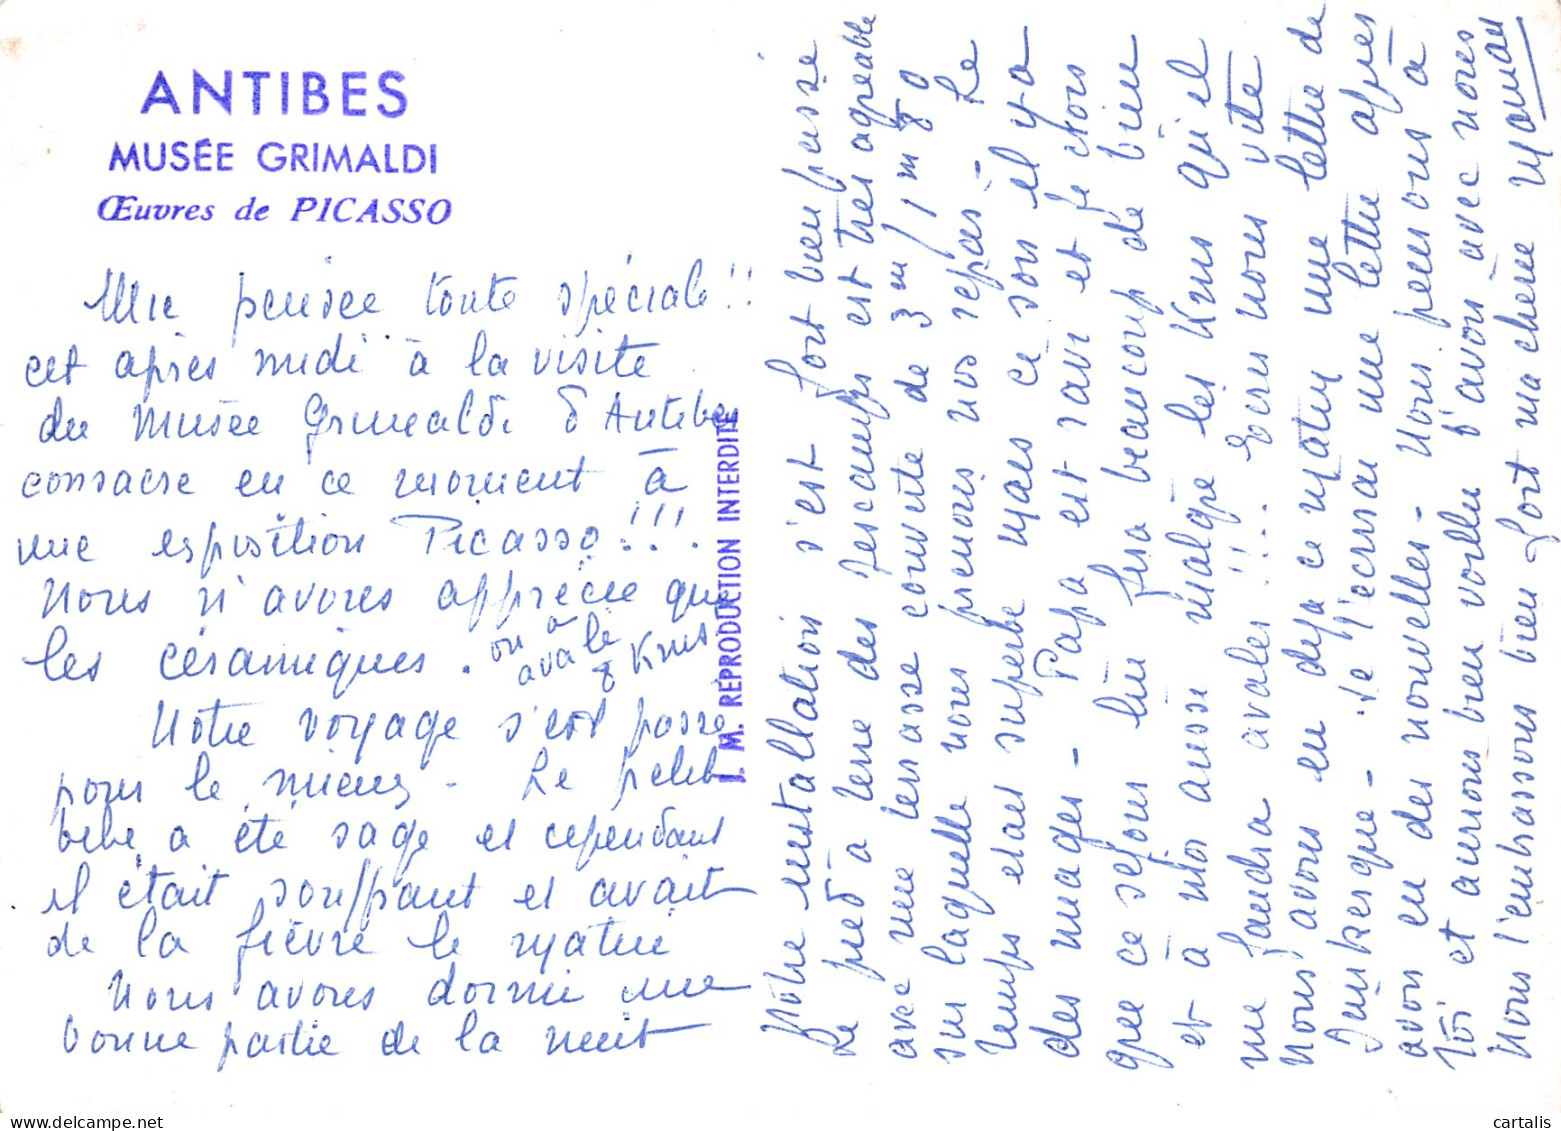 ANTIBES
MUSÉE GRIMALDI
Œuvres de PICASSO
Une pensée toute spéciale !!
cet après midi à la visite
du Musée Grimaldi d'Antibes
consacre en ce moment à
une exposition Picasso !!!
Nous n'avons apprécié que
les céramiques.
Notre voyage s'est passé
pour le mieux - Le petit
bébé a été sage et cependant
il était souffrant et avait
de la fièvre le matin
Nous avons dormi une
bonne partie de la nuit
on a
avalé
8 Kms
J. M. REPRODUCTION INTERDITE
Notre installation s'est fort bien passée
Le pied à terre des Descamps est très agréable
avec une terrasse couverte de 3 m / 1 m 80
sur laquelle nous prenons nos repas - Le
temps était superbe mais ce soir il y a
des nuages - Papa est ravi et je crois
que ce séjour lui fera beaucoup de bien
et à moi aussi malgré les Kms qu'il
me faudra avaler !!! Ecris nous vite
Nous avons eu déjà ce matin une lettre de
Dunkerque - Je t'écrirai une lettre après
avoir eu des nouvelles - Nous pensons à
toi et aurions bien voulu t'avoir avec nous
Nous t'embrassons bien fort ma chérie Maman
cartalis